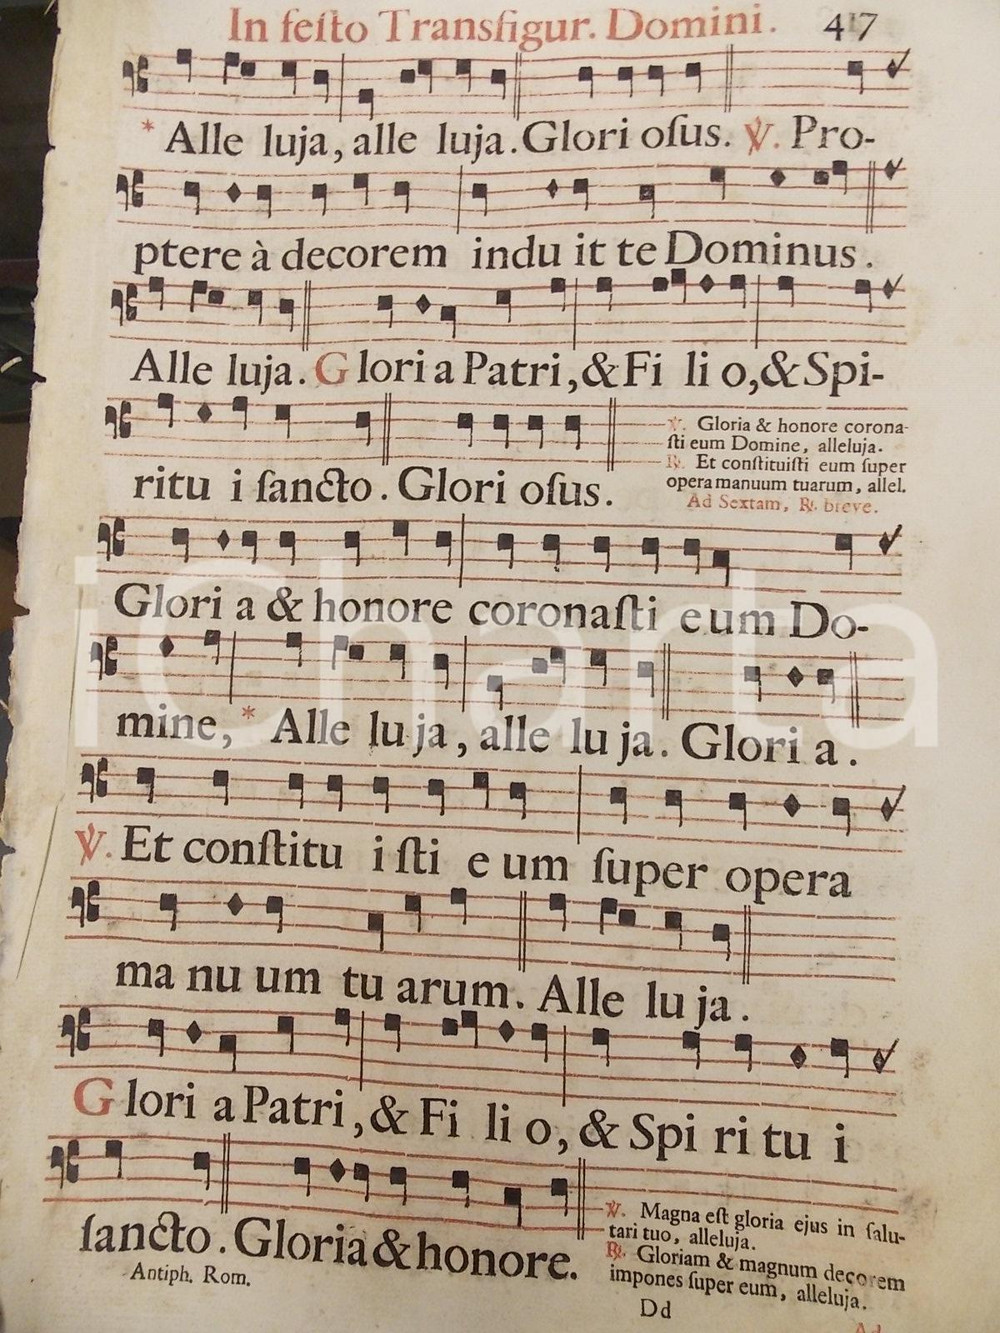 In feſto Transfigur. Domini. 417
* Alle luja, alle luja. Glori oſus. ℣. Pro-
ptere à decorem indu it te Dominus.
Alle luja. Glori a Patri, & Fi li o, & Spi-
ritu i ſancto. Glori oſus.
℣. Gloria & honore corona-
ſti eum Domine, alleluja.
℟. Et conſtituiſti eum ſuper
opera manuum tuarum, allel.
Ad Sextam, ℟. breve.
Glori a & honore coronaſti eum Do-
mine, * Alle lu ja, alle lu ja. Glori a.
℣. Et conſtitu i ſti e um ſuper opera
ma nu um tu arum. Alle lu ja.
Glori a Patri, & Fi li o, & Spi ri tu i
ſancto. Gloria & honore.
℣. Magna eſt gloria ejus in ſalu-
tari tuo, alleluja.
℟. Gloriam & magnum decorem
impones ſuper eum, alleluja.
Antiph. Rom.
Dd
Ad
iCharta